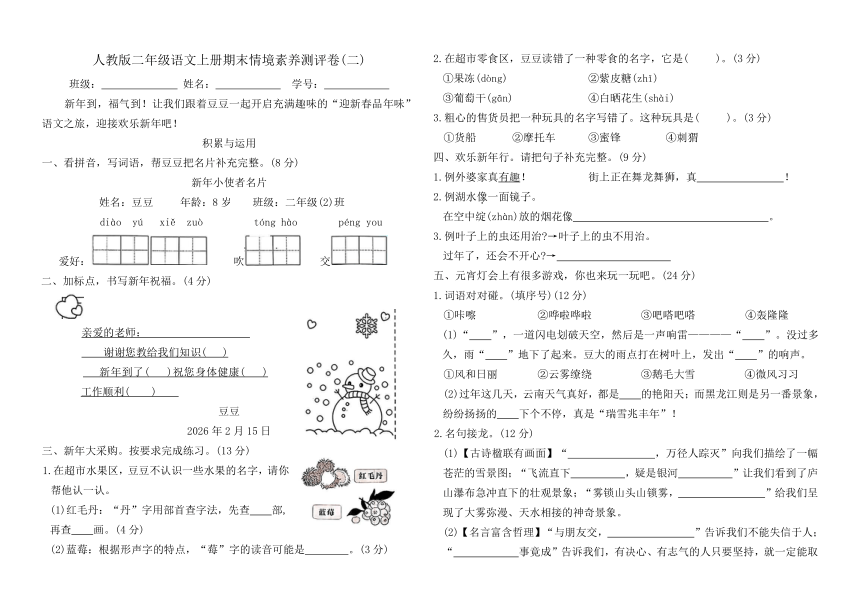 人教版二年级语文上册期末情境素养测评卷(二)
班级: 姓名: 学号:
新年到，福气到！让我们跟着豆豆一起开启充满趣味的“迎新春品年味”
语文之旅，迎接欢乐新年吧！
积累与运用
一、看拼音，写词语，帮豆豆把名片补充完整。(8 分)
新年小使者名片
姓名：豆豆 年龄：8 岁 班级：二年级(2)班
diào yú xiě zuò tóng hào péng you
爱好: 吹 交
二、加标点，书写新年祝福。(4 分)
亲爱的老师:
谢谢您教给我们知识( )
新年到了( )祝您身体健康( )
工作顺利( )
豆豆
2026 年 2 月 15 日
三、新年大采购。按要求完成练习。(13 分)
1.在超市水果区，豆豆不认识一些水果的名字，请你
帮他认一认。
红毛丹
(1)红毛丹：“丹”字用部首查字法，先查____部，
再查____画。(4 分)
蓝莓
(2)蓝莓：根据形声字的特点，“莓”字的读音可能是________。(3 分)
2.在超市零食区，豆豆读错了一种零食的名字，它是( )。(3 分)
①果冻(dòng) ②紫皮糖(zhǐ)
③葡萄干(gān) ④白晒花生(shài)
3.粗心的售货员把一种玩具的名字写错了。这种玩具是( )。(3 分)
①货船 ②摩托车 ③蜜锋 ④刺猬
四、欢乐新年行。请把句子补充完整。(9 分)
1.例外婆家真有趣！ 街上正在舞龙舞狮，真________________！
2.例湖水像一面镜子。
在空中绽(zhàn)放的烟花像____________________________。
3.例叶子上的虫还用治?→叶子上的虫不用治。
过年了，还会不开心?→________________
五、元宵灯会上有很多游戏，你也来玩一玩吧。(24 分)
1.词语对对碰。(填序号)(12 分)
①咔嚓 ②哗啦哗啦 ③吧嗒吧嗒 ④轰隆隆
(1)“____”，一道闪电划破天空，然后是一声响雷————“____”。没过多
久，雨“____”地下了起来。豆大的雨点打在树叶上，发出“____”的响声。
①风和日丽 ②云雾缭绕 ③鹅毛大雪 ④微风习习
(2)过年这几天，云南天气真好，都是____的艳阳天；而黑龙江则是另一番景象，
纷纷扬扬的____下个不停，真是“瑞雪兆丰年”！
2.名句接龙。(12 分)
(1)【古诗楹联有画面】“________________，万径人踪灭”向我们描绘了一幅
苍茫的雪景图；“飞流直下__________，疑是银河__________”让我们看到了庐
山瀑布急冲直下的壮观景象；“雾锁山头山锁雾，________________”给我们呈
现了大雾弥漫、天水相接的神奇景象。
(2)【名言富含哲理】“与朋友交，________________”告诉我们不能失信于人；
“____________事竟成”告诉我们，有决心、有志气的人只要坚持，就一定能取